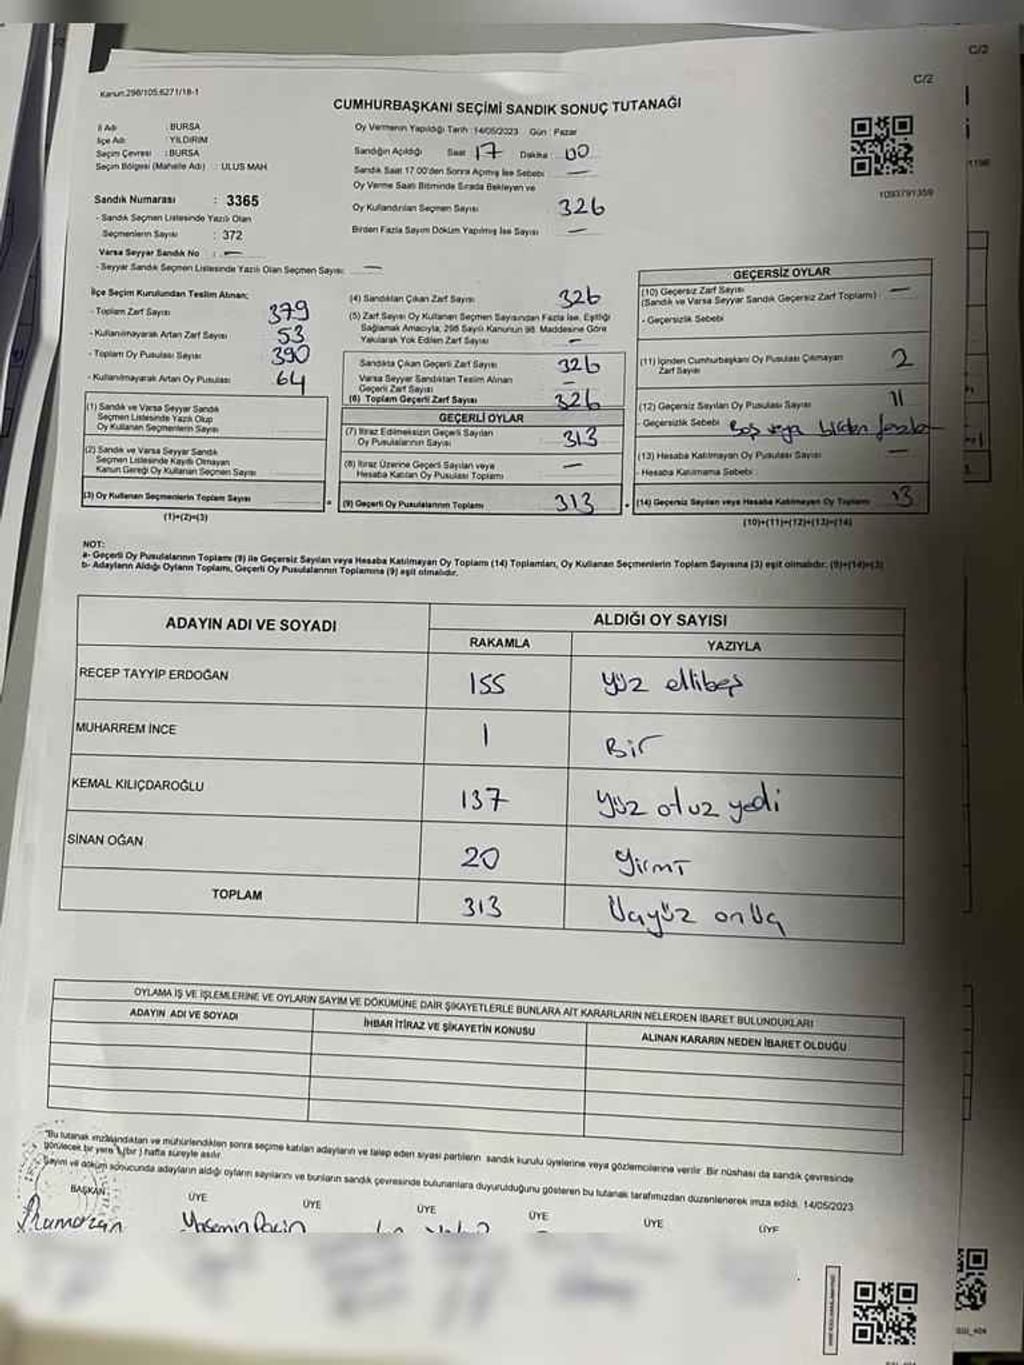 C/2
C/2
Kanun:298/105:6271/18-1
CUMHURBAŞKANI SEÇİMİ SANDIK SONUÇ TUTANAĞI
İl Adı : BURSA
İlçe Adı : YILDIRIM
Seçim Çevresi : BURSA
Seçim Bölgesi (Mahalle Adı) : ULUS MAH
Sandık Numarası : 3365
- Sandık Seçmen Listesinde Yazılı Olan
Seçmenlerin Sayısı : 372
Varsa Seyyar Sandık No : —
- Seyyar Sandık Seçmen Listesinde Yazılı Olan Seçmen Sayısı: —
Oy Vermenin Yapıldığı Tarih : 14/05/2023 Gün : Pazar
Sandığın Açıldığı Saat 17 Dakika : 00
Sandık Saat 17.00'den Sonra Açılmış İse Sebebi —
Oy Verme Saati Bitiminde Sırada Bekleyen ve
Oy Kullandırılan Seçmen Sayısı 326
Birden Fazla Sayım Döküm Yapılmış İse Sayısı —
1093791359
İlçe Seçim Kurulundan Teslim Alınan;
- Toplam Zarf Sayısı 379
- Kullanılmayarak Artan Zarf Sayısı 53
- Toplam Oy Pusulası Sayısı 390
- Kullanılmayarak Artan Oy Pusulası 64
(1) Sandık ve Varsa Seyyar Sandık
Seçmen Listesinde Yazılı Olup
Oy Kullanan Seçmenlerin Sayısı
(2) Sandık ve Varsa Seyyar Sandık
Seçmen Listesinde Kayıtlı Olmayan
Kanun Gereği Oy Kullanan Seçmen Sayısı
(3) Oy Kullanan Seçmenlerin Toplam Sayısı
(1)+(2)=(3)
(4) Sandıktan Çıkan Zarf Sayısı 326
(5) Zarf Sayısı Oy Kullanan Seçmen Sayısından Fazla İse, Eşitliği
Sağlamak Amacıyla, 298 Sayılı Kanunun 98. Maddesine Göre
Yakılarak Yok Edilen Zarf Sayısı —
Sandıkta Çıkan Geçerli Zarf Sayısı 326
Varsa Seyyar Sandıktan Teslim Alınan
Geçerli Zarf Sayısı —
(6) Toplam Geçerli Zarf Sayısı 326
GEÇERLİ OYLAR
(7) İtiraz Edilmeksizin Geçerli Sayılan
Oy Pusulalarının Sayısı 313
(8) İtiraz Üzerine Geçerli Sayılan veya
Hesaba Katılan Oy Pusulası Toplamı —
(9) Geçerli Oy Pusulalarının Toplamı 313
GEÇERSİZ OYLAR
(10) Geçersiz Zarf Sayısı —
(Sandık ve Varsa Seyyar Sandık Geçersiz Zarf Toplamı)
- Geçersizlik Sebebi
(11) İçinden Cumhurbaşkanı Oy Pusulası Çıkmayan
Zarf Sayısı 2
(12) Geçersiz Sayılan Oy Pusulası Sayısı 11
- Geçersizlik Sebebi Boş veya birden fazla
(13) Hesaba Katılmayan Oy Pusulası Sayısı —
- Hesaba Katılmama Sebebi
(14) Geçersiz Sayılan veya Hesaba Katılmayan Oy Toplamı 13
(10)+(11)+(12)+(13)=(14)
NOT:
a- Geçerli Oy Pusulalarının Toplamı (9) ile Geçersiz Sayılan veya Hesaba Katılmayan Oy Toplam (14) Toplamları, Oy Kullanan Seçmenlerin Toplam Sayısına (3) eşit olmalıdır. (9)+(14)=(3)
b- Adayların Aldığı Oyların Toplamı, Geçerli Oy Pusulalarının Toplamına (9) eşit olmalıdır.
ADAYIN ADI VE SOYADI ALDIĞI OY SAYISI
RAKAMLA YAZIYLA
RECEP TAYYİP ERDOĞAN 155 Yüz ellibeş
MUHARREM İNCE 1 Bir
KEMAL KILIÇDAROĞLU 137 Yüz otuz yedi
SİNAN OĞAN 20 Yirmi
TOPLAM 313 Üçyüz onüç
OYLAMA İŞ VE İŞLEMLERİNE VE OYLARIN SAYIM VE DÖKÜMÜNE DAİR ŞİKAYETLERLE BUNLARA AİT KARARLARIN NELERDEN İBARET BULUNDUKLARI
ADAYIN ADI VE SOYADI İHBAR İTİRAZ VE ŞİKAYETİN KONUSU ALINAN KARARIN NEDEN İBARET OLDUĞU
"Bu tutanak imzalandıktan ve mühürlendikten sonra seçime katılan adayların ve talep eden siyasi partilerin sandık kurulu üyelerine veya gözlemcilerine verilir. Bir nüshası da sandık çevresinde
görülecek bir yere 1 (bir) hafta süreyle asılır.
Sayım ve döküm sonucunda adayların aldığı oyların sayılarını ve bunların sandık çevresinde bulunanlara duyurulduğunu gösteren bu tutanak tarafımızdan düzenlenerek imza edildi. 14/05/2023
BAŞKAN ÜYE ÜYE ÜYE ÜYE ÜYE ÜYE
Yasemin